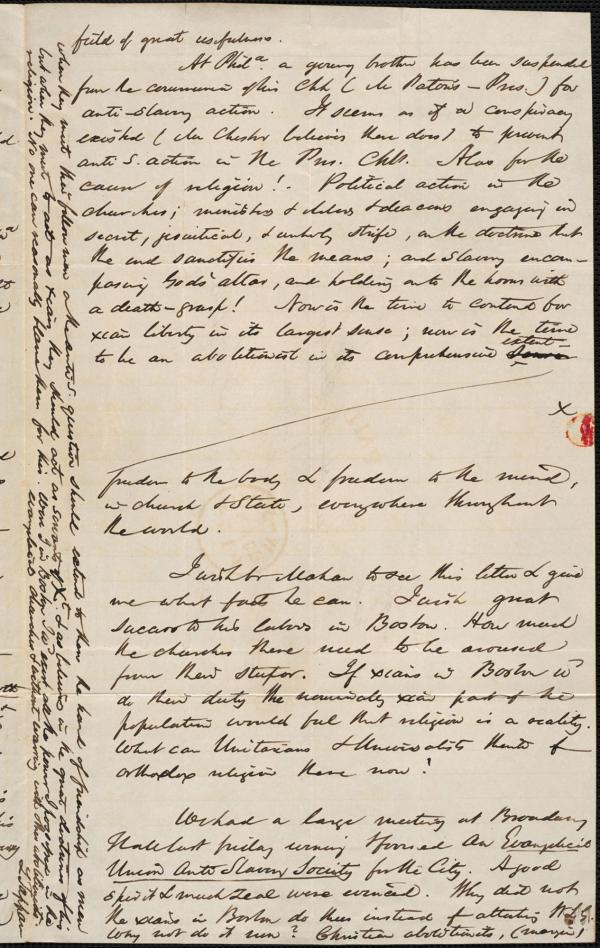 field of great usefulness.
At Phila. a young brother has been suspended
from the communion of his Chh (Mr Patton's – Pres.) for
anti-slavery action. It seems as if a conspiracy
existed (Mr Chester believes there does) to prevent
anti S. action in the Pres. Chhs. Alas for the
cause of religion! Political action in the
churches; ministers & elders & deacons engaging in
secret, jesuitical, & unholy strife, on the doctrine that
the end sanctifies the means; and slavery encom-
passing God's altar, and holding on to the horns with
a death-grasp! Now is the time to contend for
xian liberty in its largest sense; now is the time
to be an abolitionist in its comprehensive extent –
x
freedom to the body & freedom to the mind,
in church & State, everywhere throughout
the world.
I wish br Mahan to see this letter & give
me what facts he can. I wish great
success to his labors in Boston. How much
the churches there need to be aroused
from their stupor. If xians in Boston wd
do their duty the nominally xian part of the
population would feel that religion is a reality.
What can Unitarians & Universalists think of
orthodox religion there now!
We had a large meeting at Broadway
Hall last friday evening & formed An Evangelical
Union Anti Slavery Society for the City. A good
spirit & much zeal were evinced. Why did not
the xians in Boston do thus instead of attacking W.L.G.
Why not do it now? Christian abolitionists, (margin)
when they meet their fellow men on the anti S. question should extend to them the hand of friendship as men
but when they meet to act as xians they should act as servants of Xt. & as believers in the great doctrines of his
religion. No one can reasonably blame them for this. Were I in Boston I wd exert all the power I possess in the
evangelical churches & without warring with other abolitionists.
L. Tappan